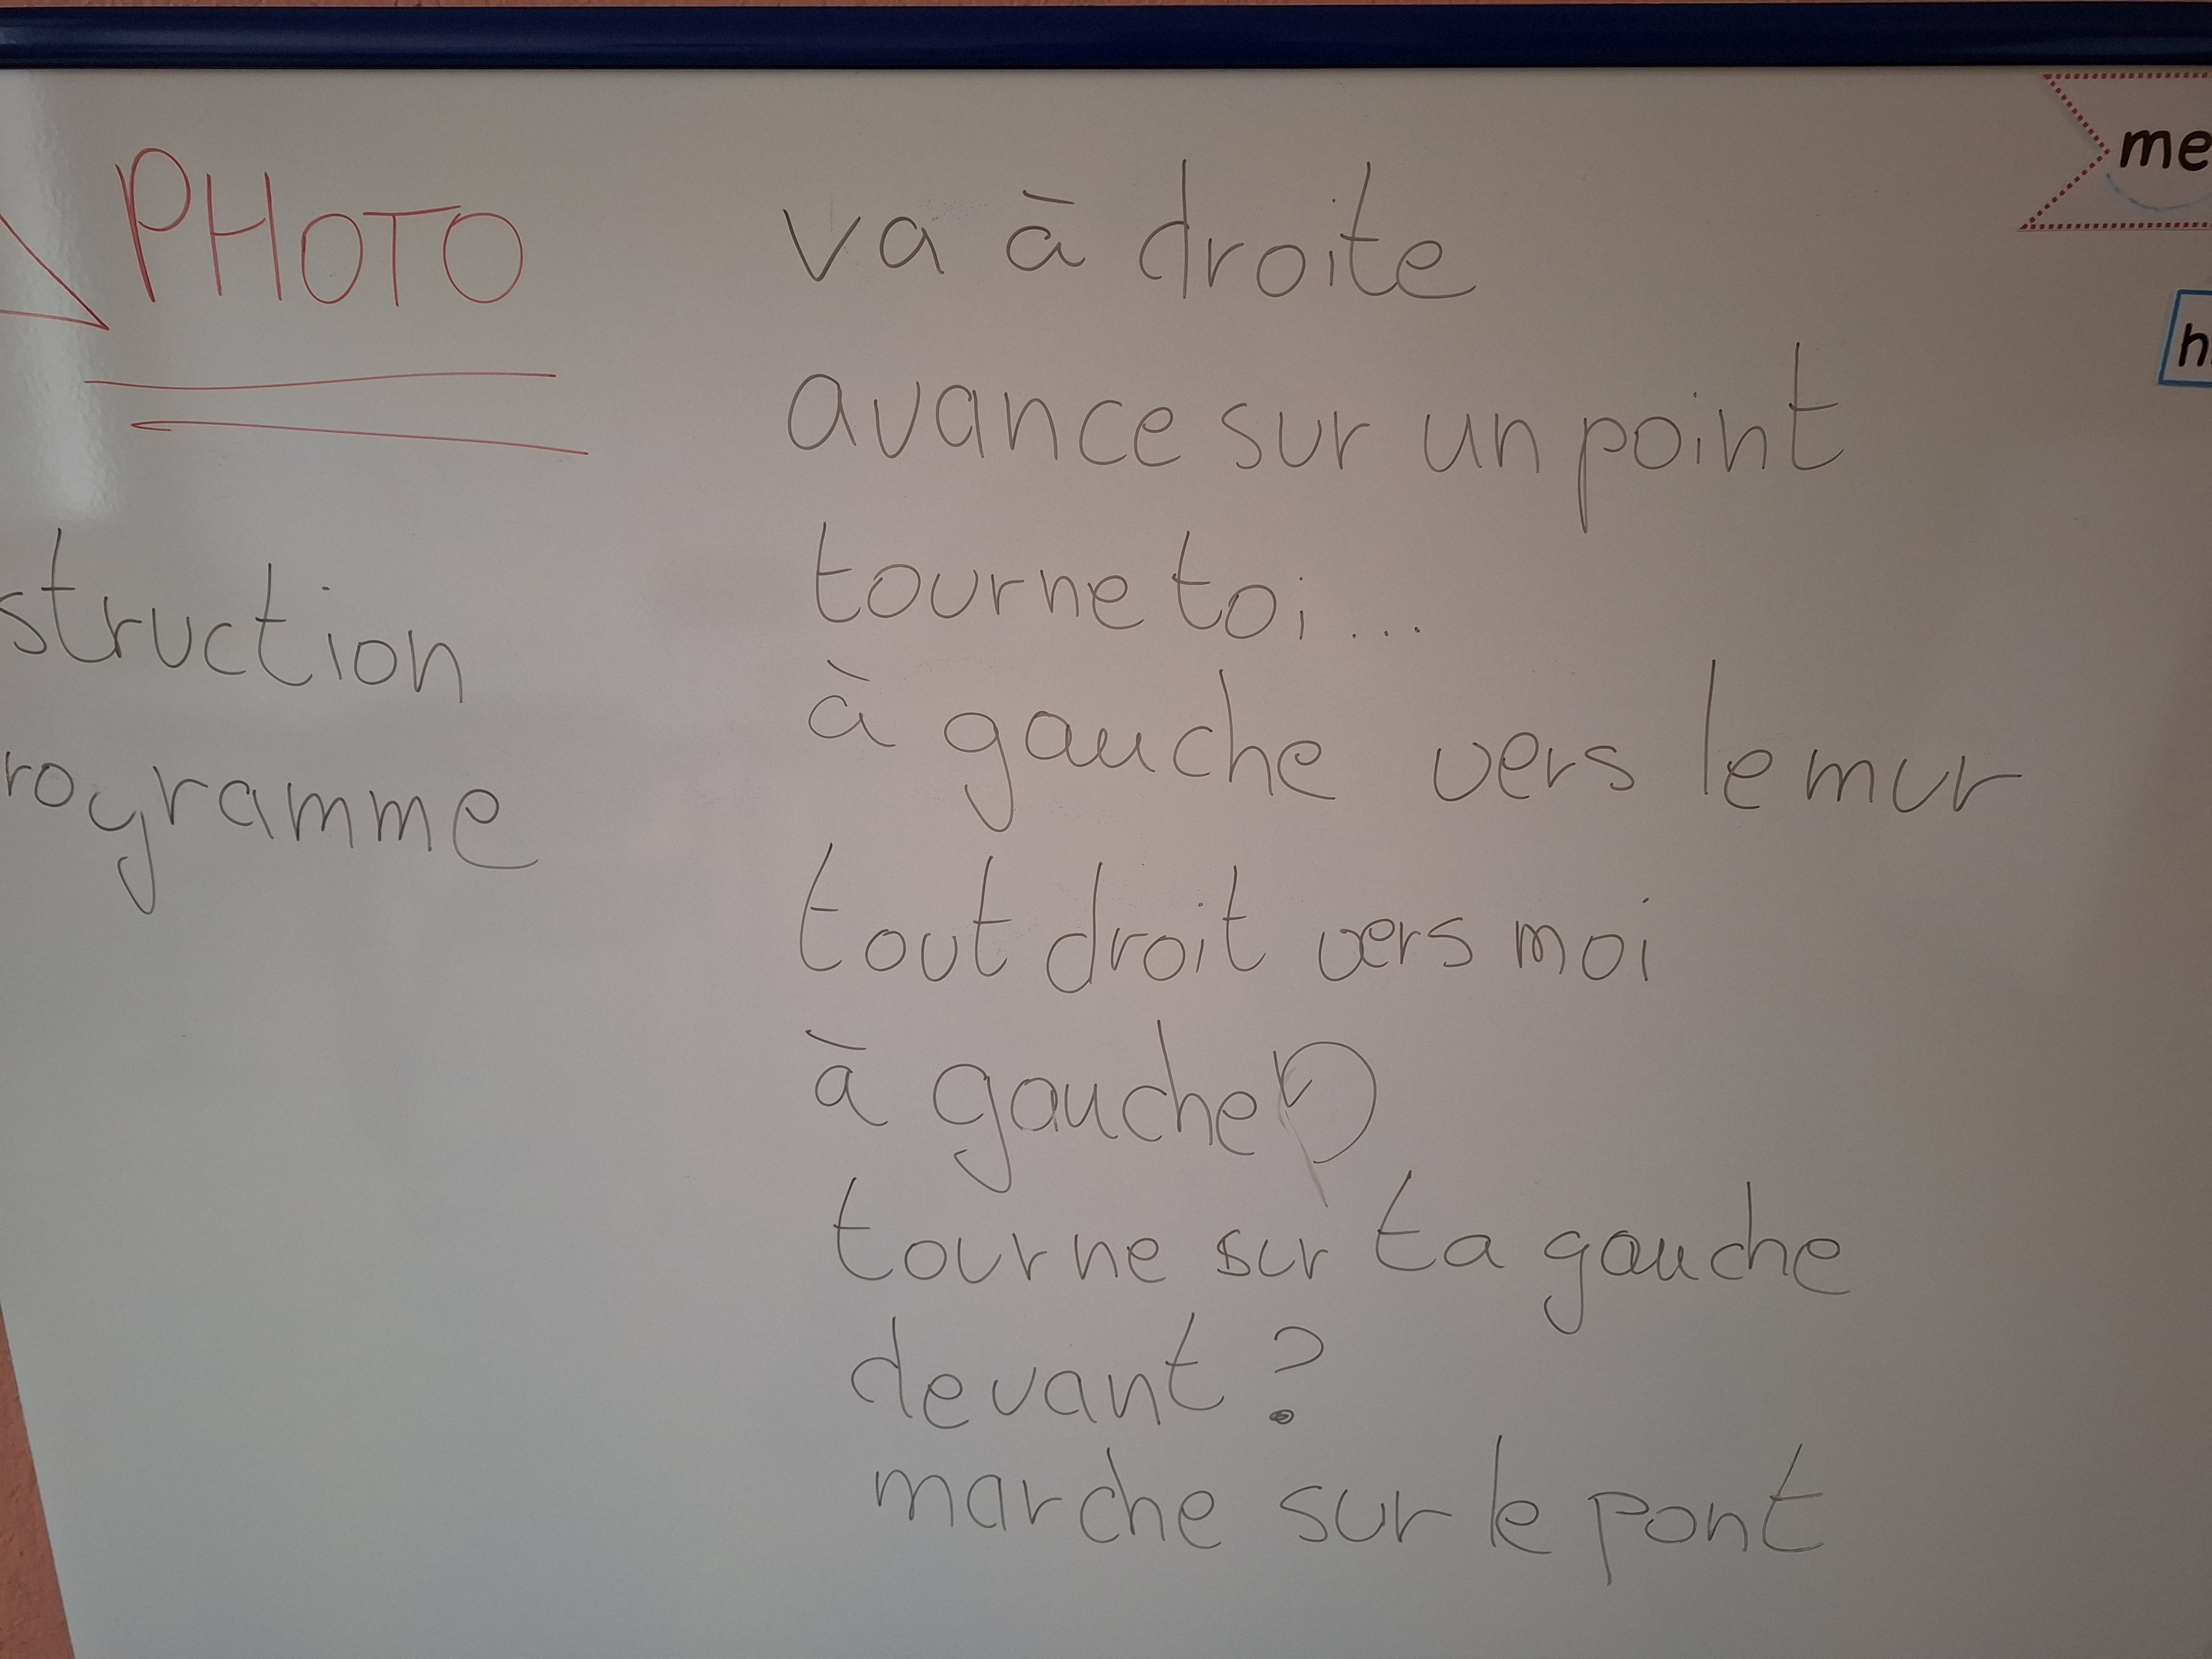 PHOTO
struction
rogramme
va à droite
avance sur un point
tourne toi...
à gauche vers le mur
tout droit vers moi
à gauche
tourne sur ta gauche
devant ?
marche sur le pont
me
h